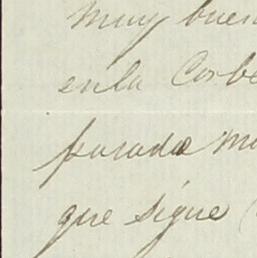 Muy buen
en la Corbe
parada m
que sigue